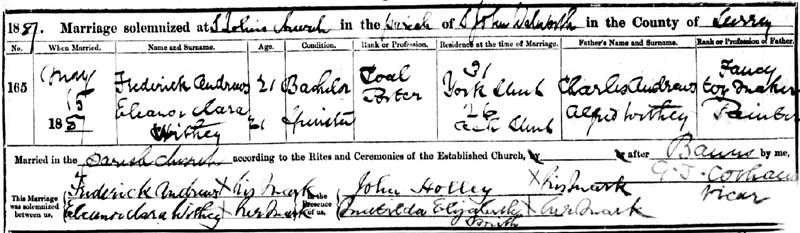 1887. Marriage solemnized at St Johns Church in the Parish of St John Walworth in the County of Surrey
No. When Married. Name and Surname. Age. Condition. Rank or Profession. Residence at the time of Marriage. Father's Name and Surname. Rank or Profession of Father.
165 May 15 1887 Frederick Andrews 21 Bachelor Coal Porter 31 York Charles Andrews Fancy toy maker
Eleanor Clara Withey 21 Spinster 26 Alfred Withey Painter
Married in the Parish Church according to the Rites and Ceremonies of the Established Church, by after Banns by me,
This Marriage was solemnized between us, Frederick Andrews X his mark In the Presence of us, John Holley X his mark G. T. Vicar
Eleanor Clara Withey X her mark Elizabeth Smith X her mark